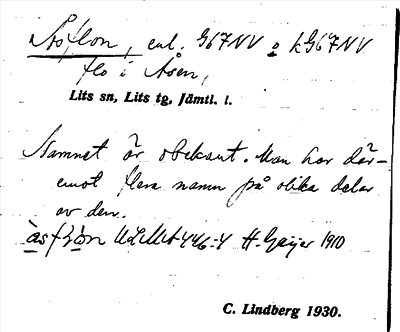 Åsflon, enl. G67NV o kG67NV
flo i Åsen,
Lits sn, Lits tg, Jämtl. l.
Namnet är obekant. Man har där-
emot flera namn på olika delar
av den.
H. Geijer 1910
C. Lindberg 1930.